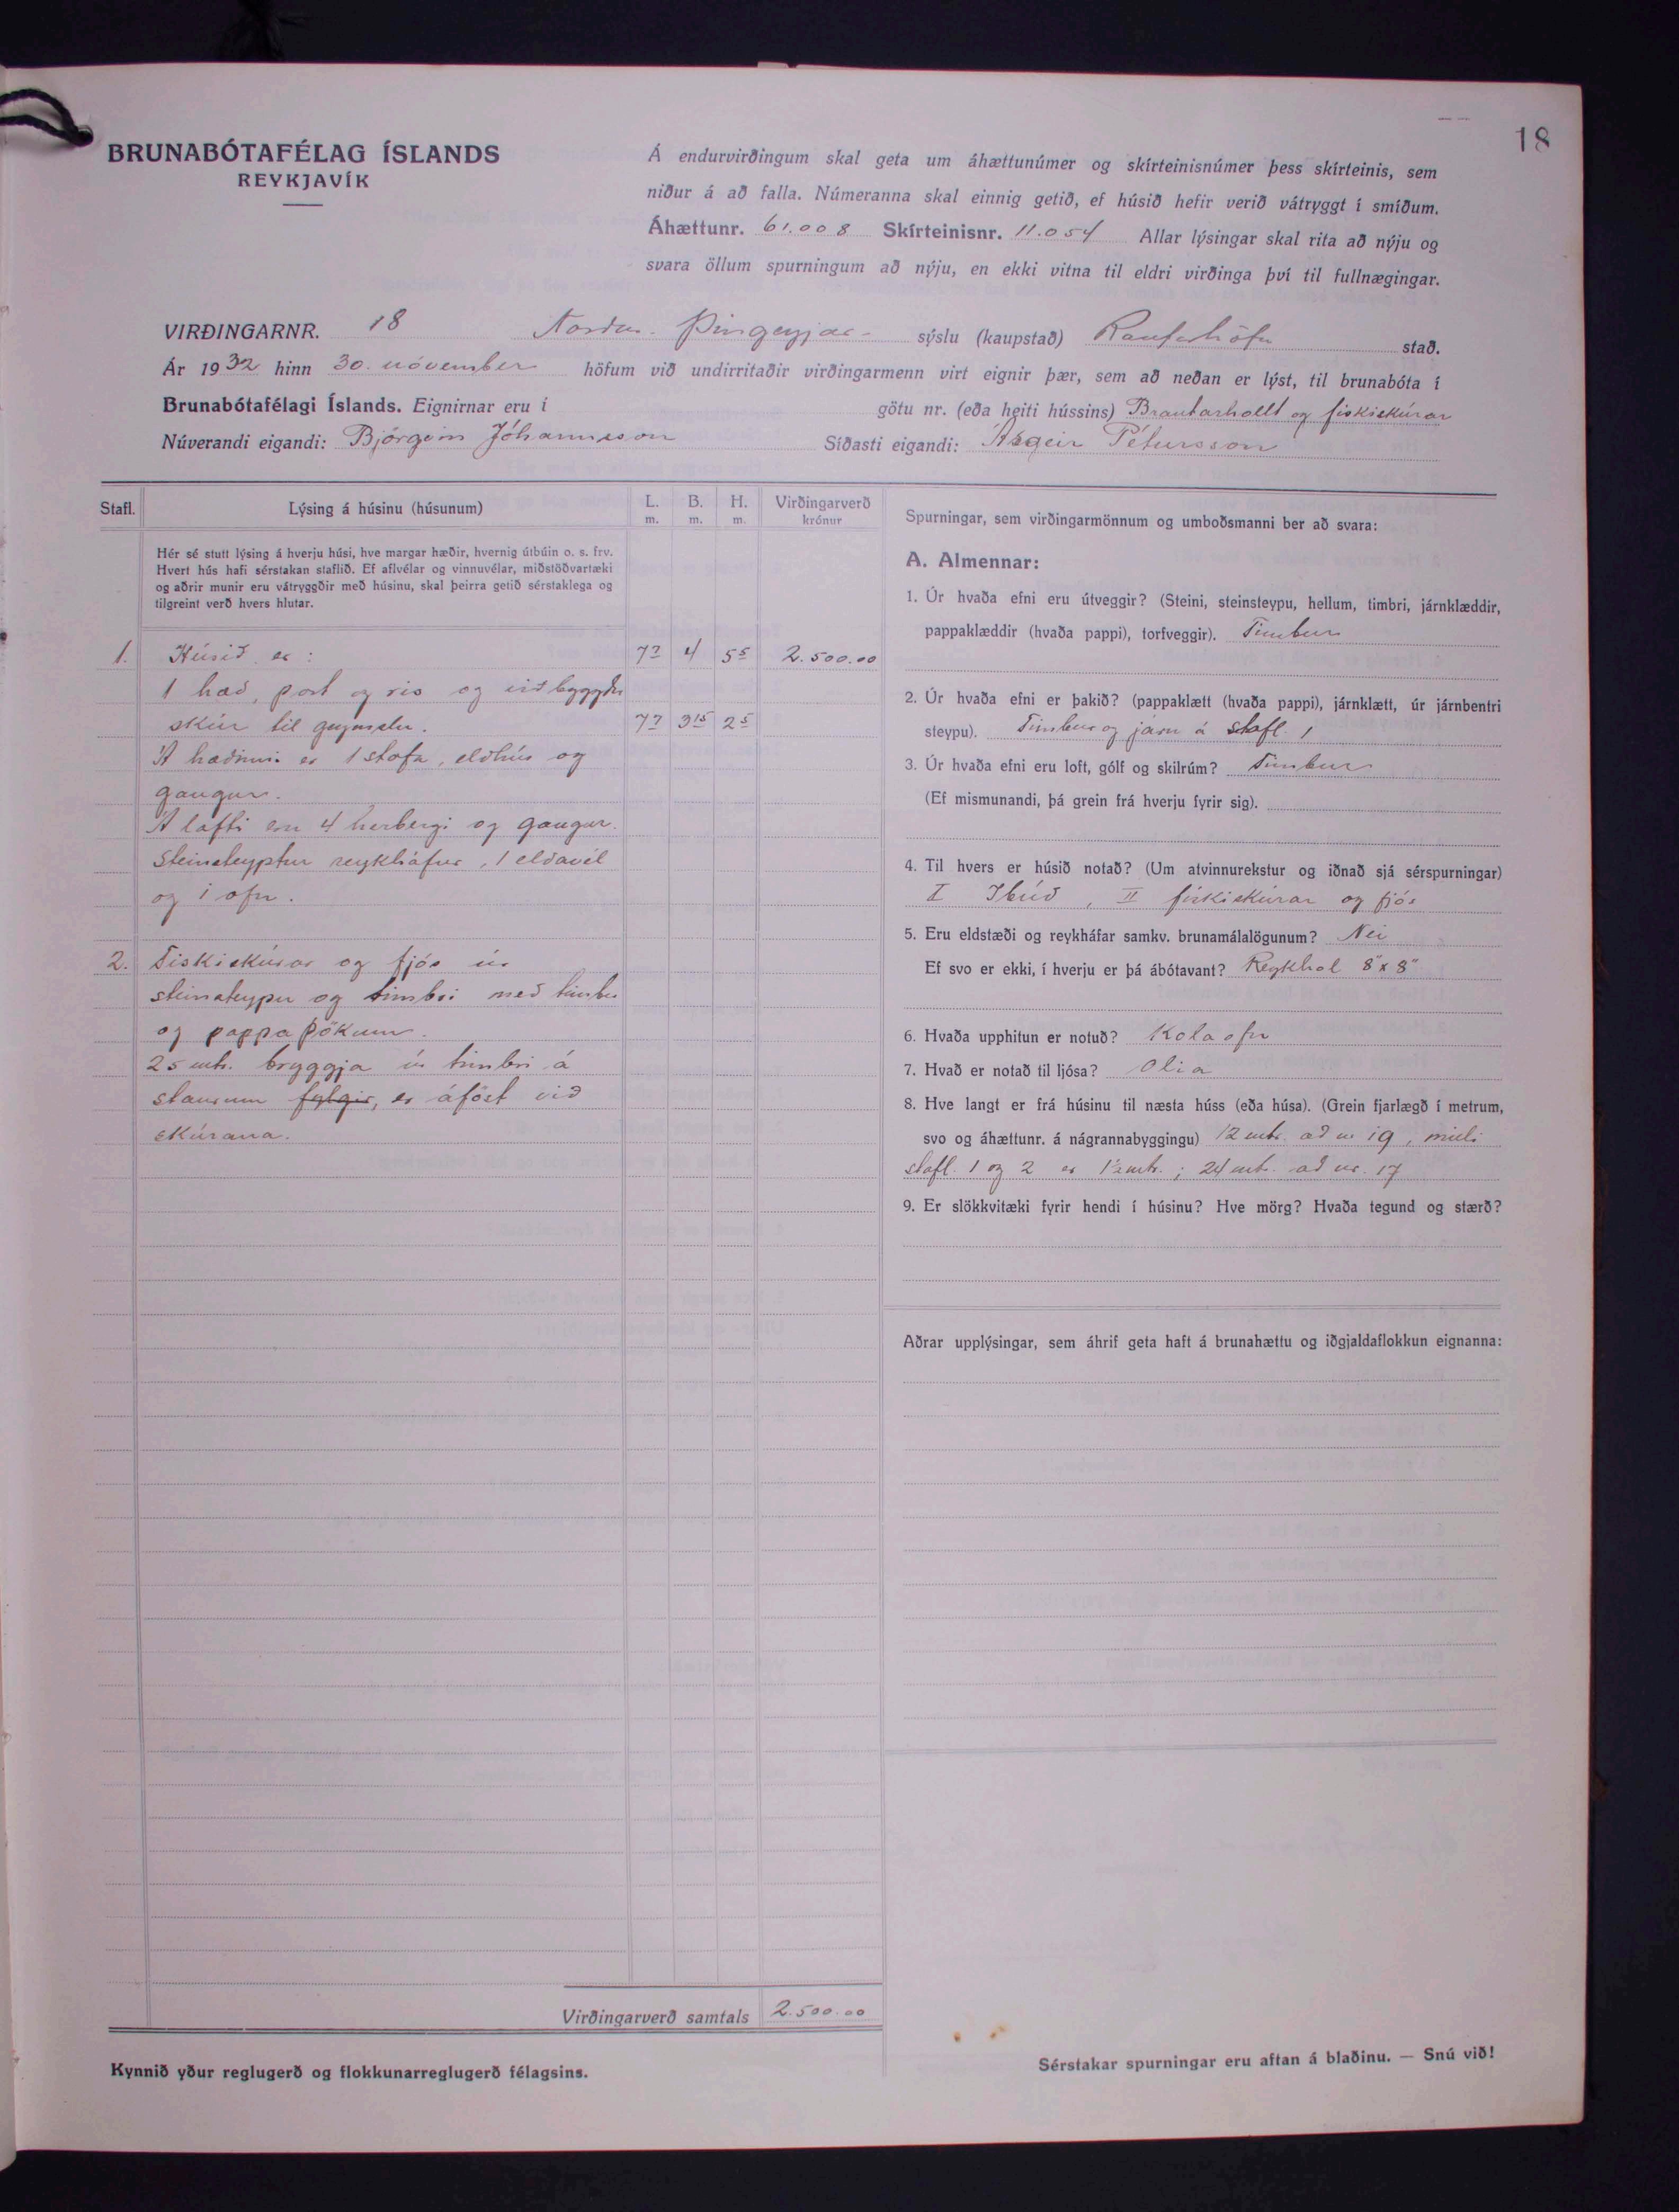 18
BRUNABÓTAFÉLAG ÍSLANDS
REYKJAVÍK
Á endurvirðingum skal geta um áhættunúmer og skírteinisnúmer þess skírteinis, sem
niður á að falla. Númeranna skal einnig getið, ef húsið hefir verið vátryggt í smíðum.
Áhættunr. 61.008 Skírteinisnr. 11.054 Allar lýsingar skal rita að nýju og
svara öllum spurningum að nýju, en ekki vitna til eldri virðinga því til fullnægingar.
VIRÐINGARNR. 18 Norður-Þingeyjar- sýslu (kaupstað) Raufarhöfn stað.
Ár 1932 hinn 30. nóvember höfum við undirritaðir virðingarmenn virt eignir þær, sem að neðan er lýst, til brunabóta í
Brunabótafélagi Íslands. Eignirnar eru í götu nr. (eða heiti hússins) Brautarhollt og fiskiskúrar
Núverandi eigandi: Björgvin Jóhannsson Síðasti eigandi: Ásgeir Pétursson
Stafl. Lýsing á húsinu (húsunum) L. m. B. m. H. m. Virðingarverð krónur
Hér sé stutt lýsing á hverju húsi, hve margar hæðir, hvernig útbúin o. s. frv.
Hvert hús hafi sérstakan staflið. Ef aflvélar og vinnuvélar, miðstöðvartæki
og aðrir munir eru vátryggðir með húsinu, skal þeirra getið sérstaklega og
tilgreint verð hvers hlutar.
1. Húsið er: 7⁷ 4 5⁵ 2.500.00
1 hæð, port og ris og viðbyggður
skúr til geymslu. 7⁷ 3¹⁵ 2⁵
Á hæðinni er 1 stofa, eldhús og
gangur.
Á lofti eru 4 herbergi og gangur.
Steinsteyptur reykháfur, 1 eldavél
og 1 ofn.
2. Fiskiskúrar og fjós úr
steinsteypu og timbri með timbur
og pappaþökum.
25 mtr. bryggja úr timbri á
staurum fylgir, er áföst við
skúrana.
Virðingarverð samtals 2.500.00
Kynnið yður reglugerð og flokkunarreglugerð félagsins.
Spurningar, sem virðingarmönnum og umboðsmanni ber að svara:
A. Almennar:
1. Úr hvaða efni eru útveggir? (Steini, steinsteypu, hellum, timbri, járnklæddir,
pappaklæddir (hvaða pappi), torfveggir). Timbur
2. Úr hvaða efni er þakið? (pappaklætt (hvaða pappi), járnklætt, úr járnbentri
steypu). Timbur og járn á stafl. 1
3. Úr hvaða efni eru loft, gólf og skilrúm? Timbur
(Ef mismunandi, þá grein frá hverju fyrir sig).
4. Til hvers er húsið notað? (Um atvinnurekstur og iðnað sjá sérspurningar)
I Íbúð, II fiskiskúrar og fjós
5. Eru eldstæði og reykháfar samkv. brunamálalögunum? Nei
Ef svo er ekki, í hverju er þá ábótavant? Reykhol 8" x 8"
6. Hvaða upphitun er notuð? Kolaofn
7. Hvað er notað til ljósa? Olia
8. Hve langt er frá húsinu til næsta húss (eða húsa). (Grein fjarlægð í metrum,
svo og áhættunr. á nágrannabyggingu) 12 mtr. að nr 19, milli
stafl. 1 og 2 er 1½ mtr.; 24 mtr. að nr. 17
9. Er slökkvitæki fyrir hendi í húsinu? Hve mörg? Hvaða tegund og stærð?
Aðrar upplýsingar, sem áhrif geta haft á brunahættu og iðgjaldaflokkun eignanna:
Sérstakar spurningar eru aftan á blaðinu. — Snú við!